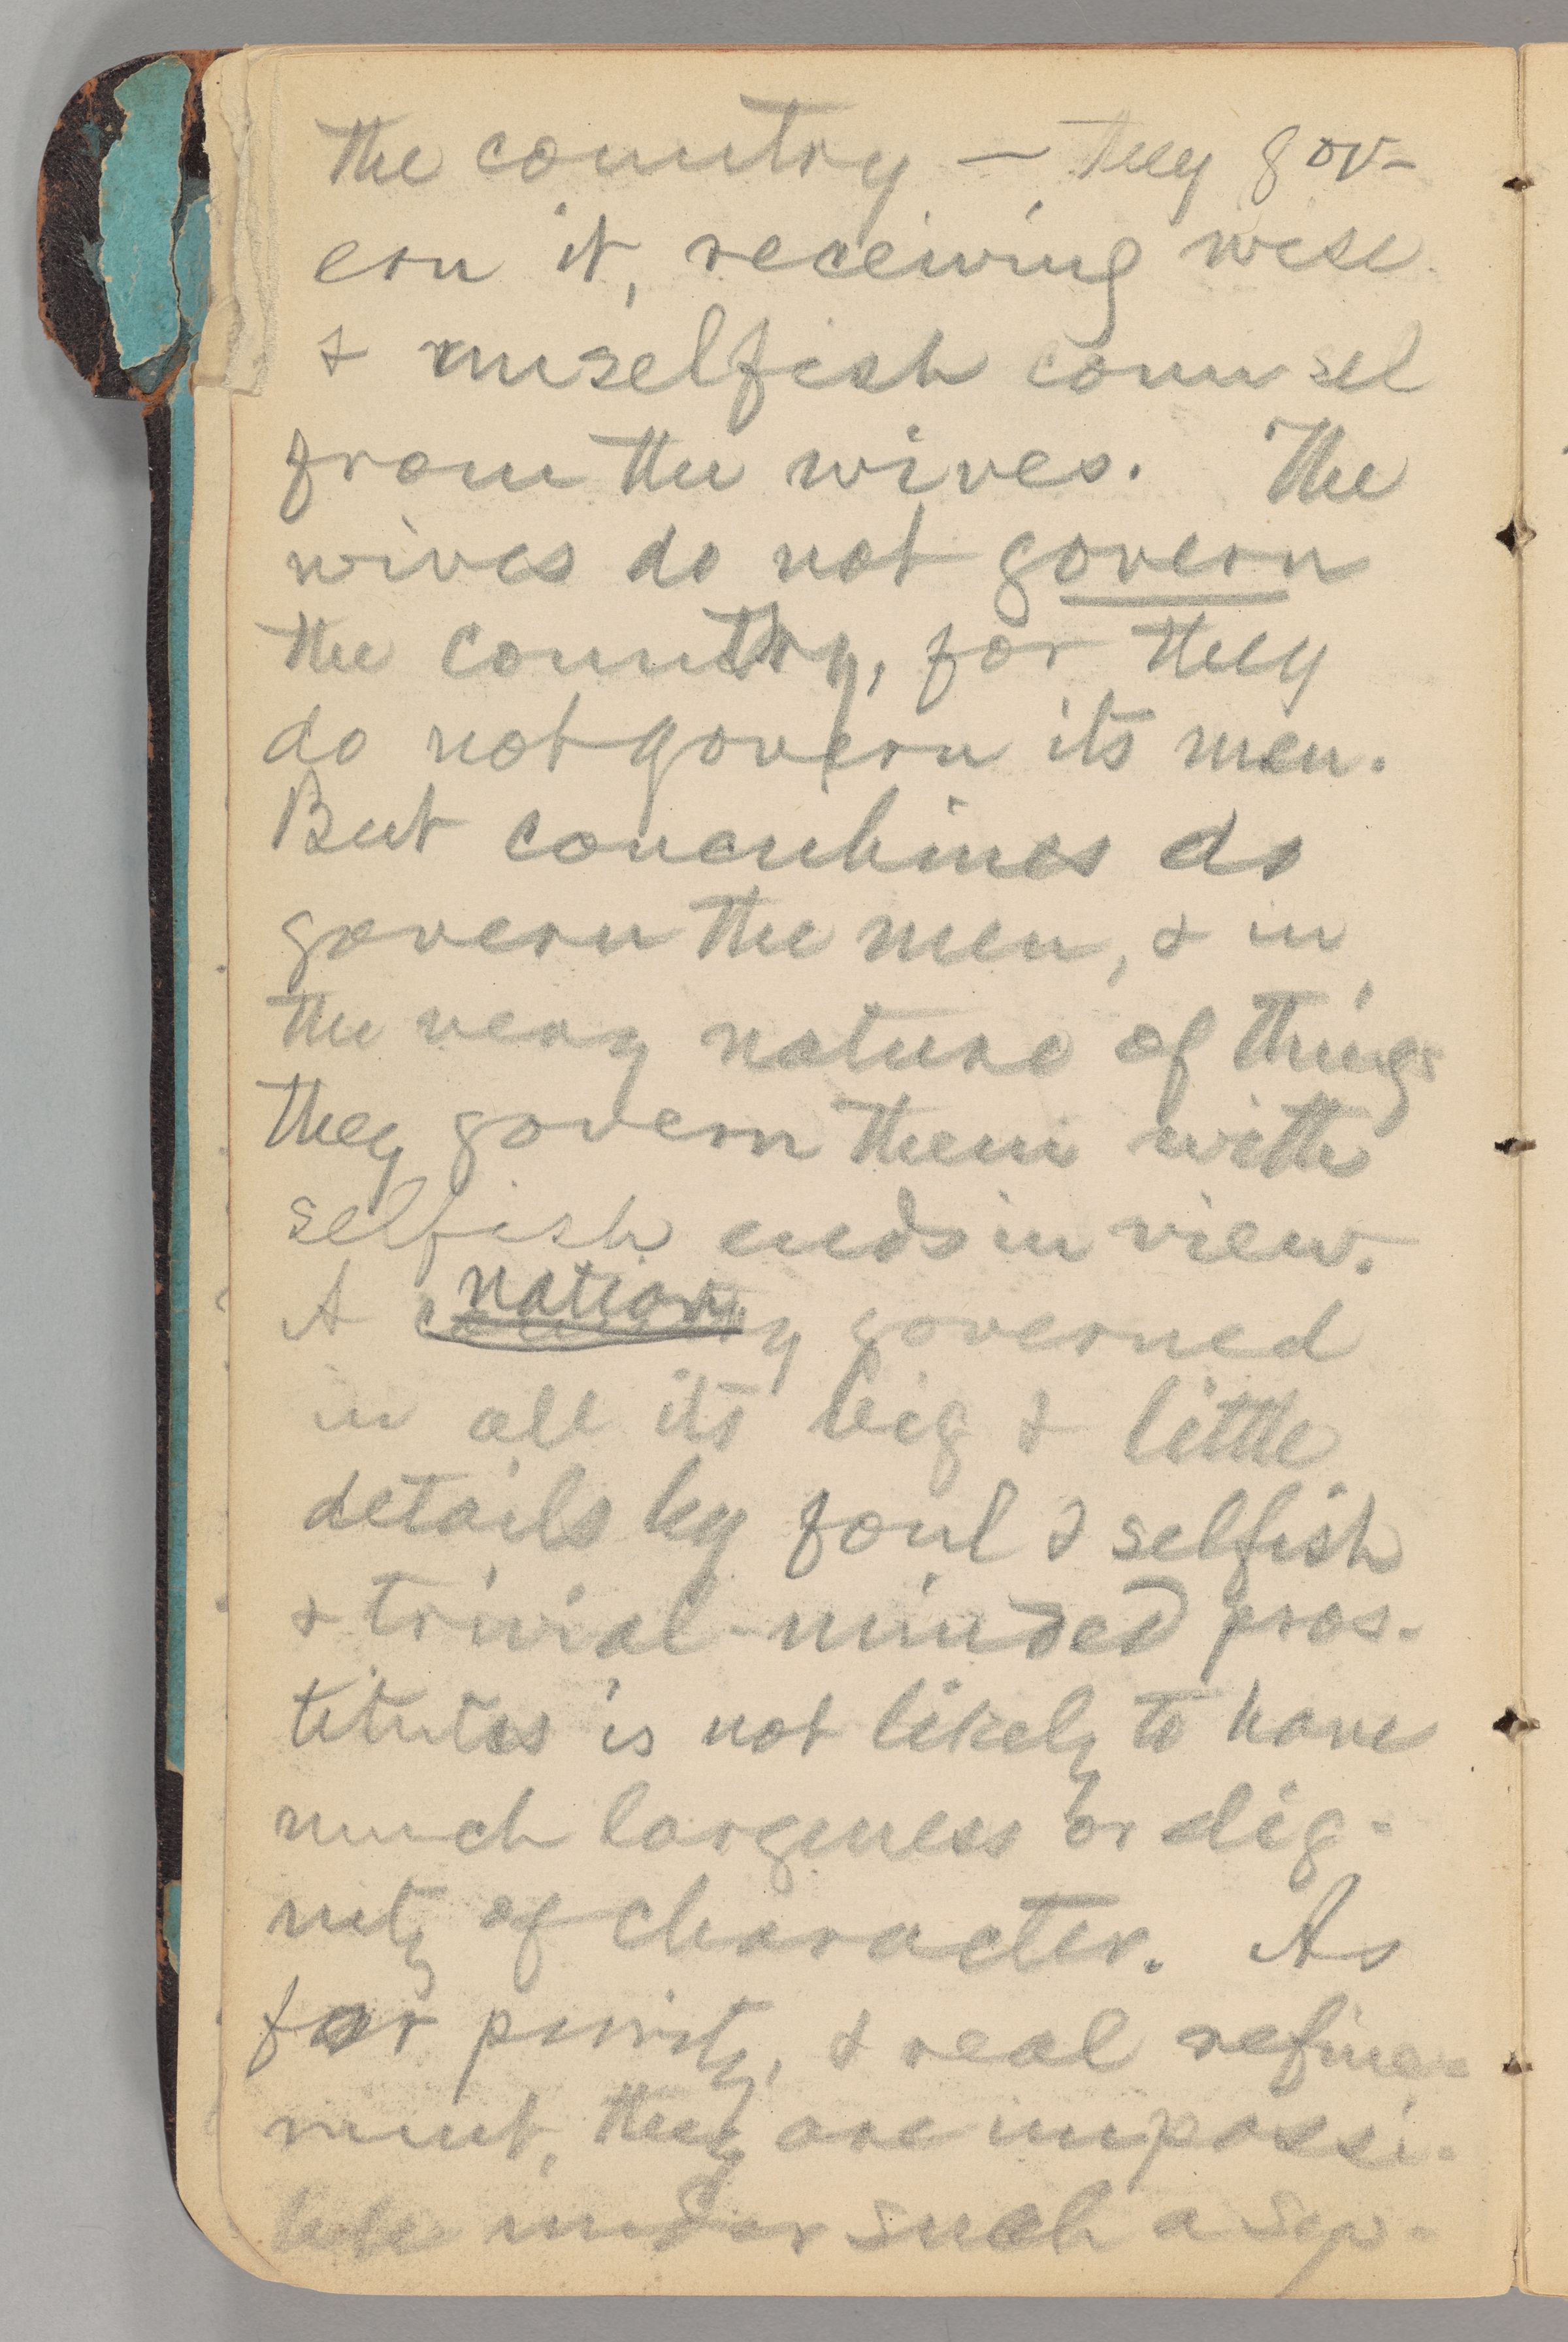 the country — they gov-
ern it, receiving wise
& unselfish counsel
from the wives. The
wives do not govern
the country, for they
do not govern its men.
But concubines do
govern the men, & in
the very nature of things
they govern them with
selfish ends in view.
A country nation governed
in all its big & little
details by foul & selfish
& trivial-minded pros-
titutes is not likely to have
much largeness or dig-
nity of character. As
for purity, & real refine-
ment, they are impossi-
ble under such a sep-